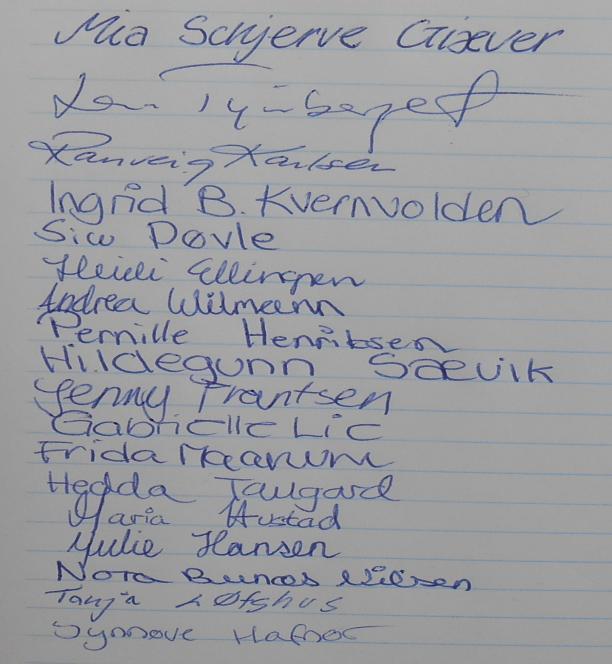 Mia Schjerve Giæver
Ranveig Karlsen
Ingrid B. Kvernvolden
Siw Døvle
Heidi Ellingsen
Andrea Wilmann
Pernille Henriksen
Hildegunn Sævik
Jenny Frantsen
Gabrielle Lie
Frida Maanum
Hedda Taugard
Maria Hustad
Julie Hansen
Nora Bunæs Nilsen
Tanja Løfshus
Synnøve